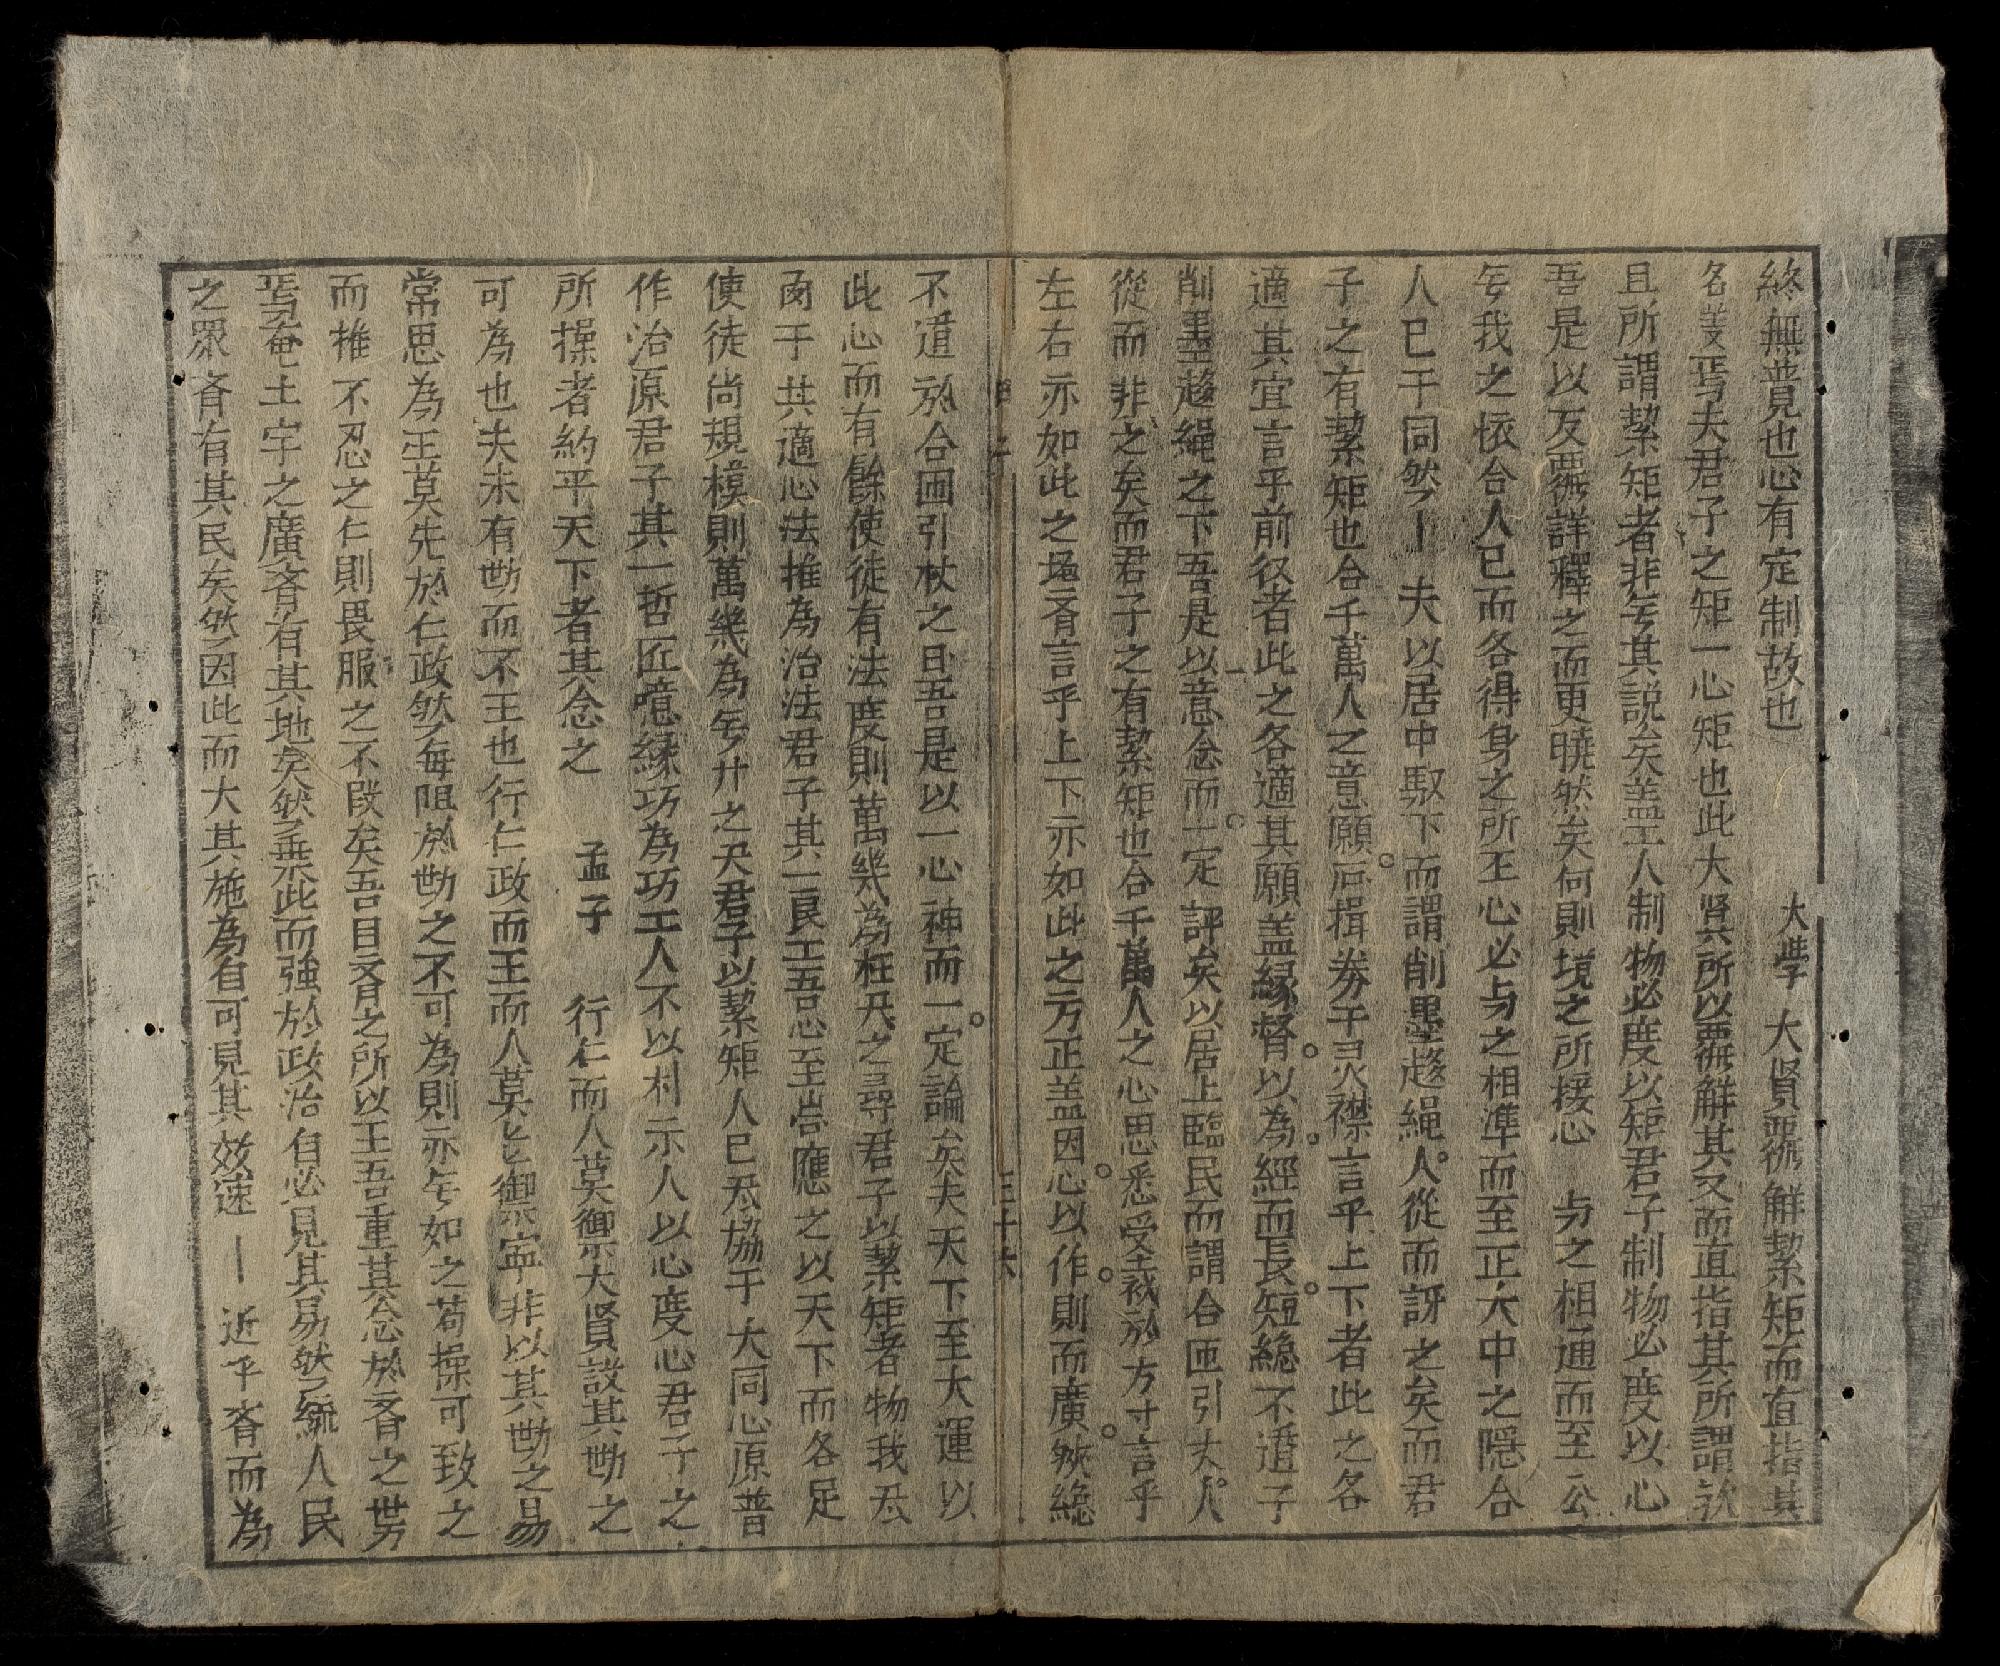 終無覚也心有定制故也 大学 大賢覆解絜矩而直指其
名義焉夫君子之矩一心矩也此大贤所以覆解其义而直指其所謂欤
且所謂絜矩者非乞其説矣盖工人制物必度以矩君子制物必度以心
吾是以反覆詳釋之而更曉然矣何則境之所接心 与之相通而至公
乞我之恢合人已而各得身之所正心必与之相準而至正大中之隠合
人已于同然 夫以居中馭下而謂削墨趍繩人從而訝之矣而君
子之有絜矩也合千萬人之意願后揖券于灵襟言乎上下者此之各
適其宜言乎前役者此之各適其願盖縁督以為經而長短緫不遁子
削墨趍繩之下吾是以意念而一定評矣以居上臨民而謂合囬引丈人
從而非之矣而君子之有絜矩也合千萬人之心思悉受裁於方寸言乎
左右亦如此之塲斉言乎上下亦如此之方正盖因心以作則而廣狹緫
不遁於合囬引杖之曰吾是以一心神而一定論矣夫天下至大運以
三十六
此心而有餘使徒有法度則萬幾為枉尺之尋君子以絜矩者物我忝
于共適心法推為治法君子其一良工吾心至当應之以天下而各足
使徒尚規模則萬幾為乞廾之尺君子以絜矩人已忝協于大同心原普
作治原君子其一哲匠噫縁巧為巧工人不以村示人以心度心君子之
所操者約平天下者其念之 孟子 行仁而人莫禦大賢設其勢之
可為也夫未有勢而不王也行仁政而王而人莫之禦寧非以其勢之易
常思為王莫先於仁政然每阻於勢之不可為則亦乞如之苟操可致之
而推不忍之仁則畏服之不叚矣吾目斉之所以王吾重其念於斉之勢
焉奄土宇之廣斉有其地矣然乗此而強於政治自必見其易然綂人民
之眾斉有其民矣然因此而大其施為自可見其效速 近乎斉而為